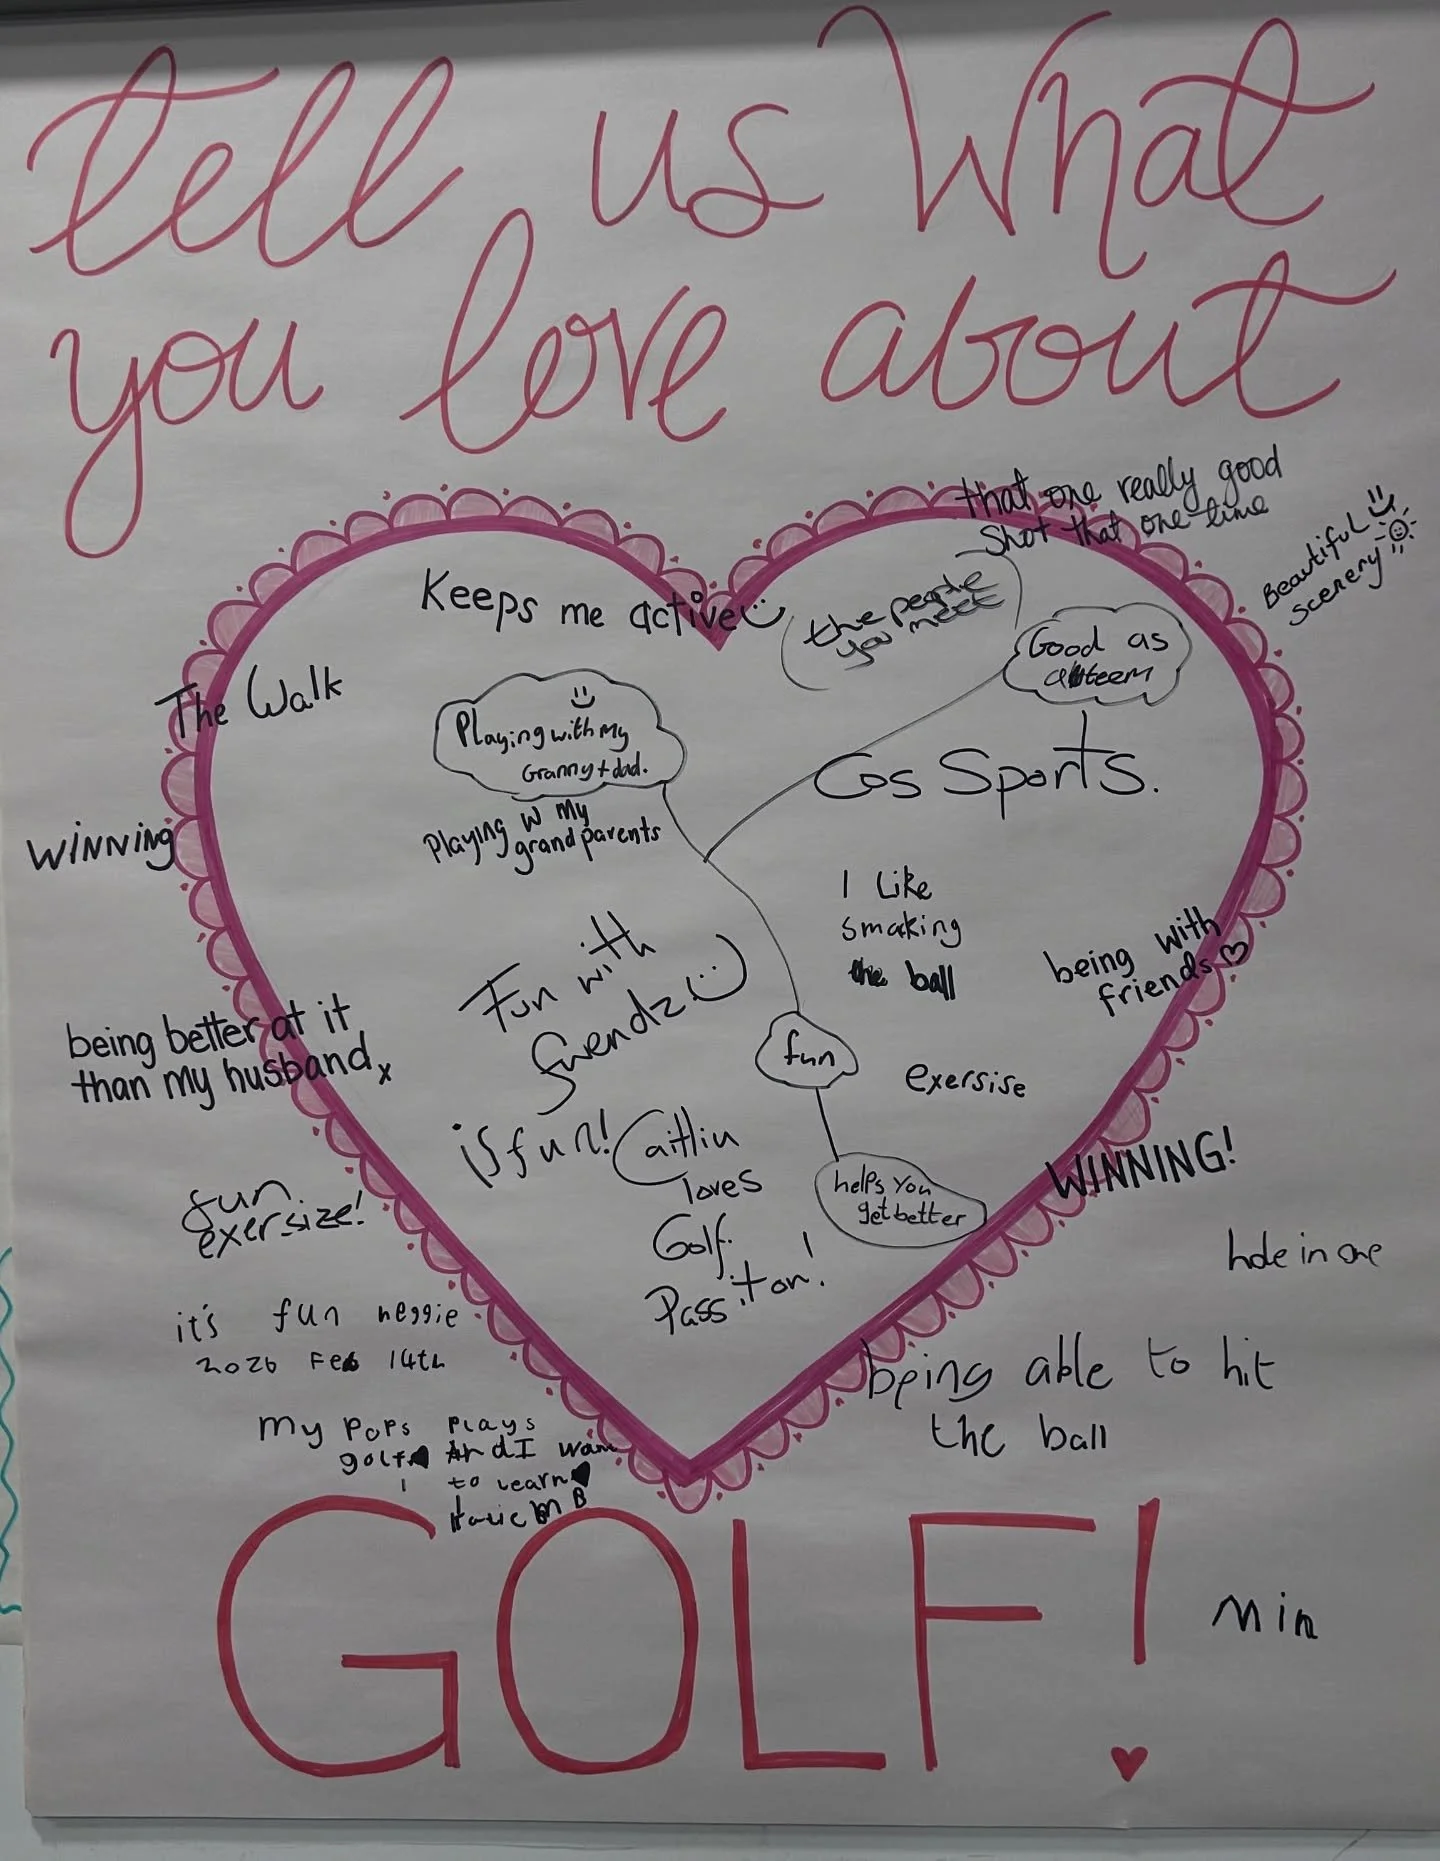 tell us What
you love about
that one really good
shot that one time
Beautiful
scenery
Keeps me active
the people
you meet
Good as
The Walk
Playing with my
Granny + dad.
Cos Sports.
Playing w my
grandparents
WINNING
I Like
smaking
the ball
being with
friends
Fun with
being better at it
than my husband x
fun
exersise
is fun!
Caitlin
loves
Golf.
Pass it on!
helps you
get better
WINNING!
fun
exersize!
hole in one
it's fun
2026 Feb 14th
being able to hit
the ball
my pops plays
golf And I want
to learn
GOLF!
Min